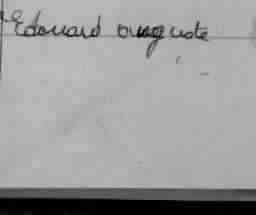 Edouard auguste